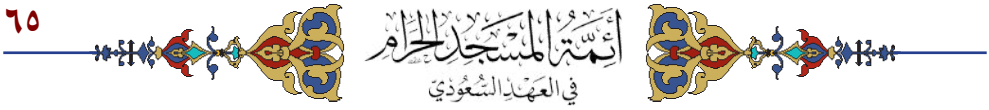 ٦٥
أَئِمَّةُ المَسْجِدِ الحَرَامِ
في العَهْدِ السُّعُوديّ